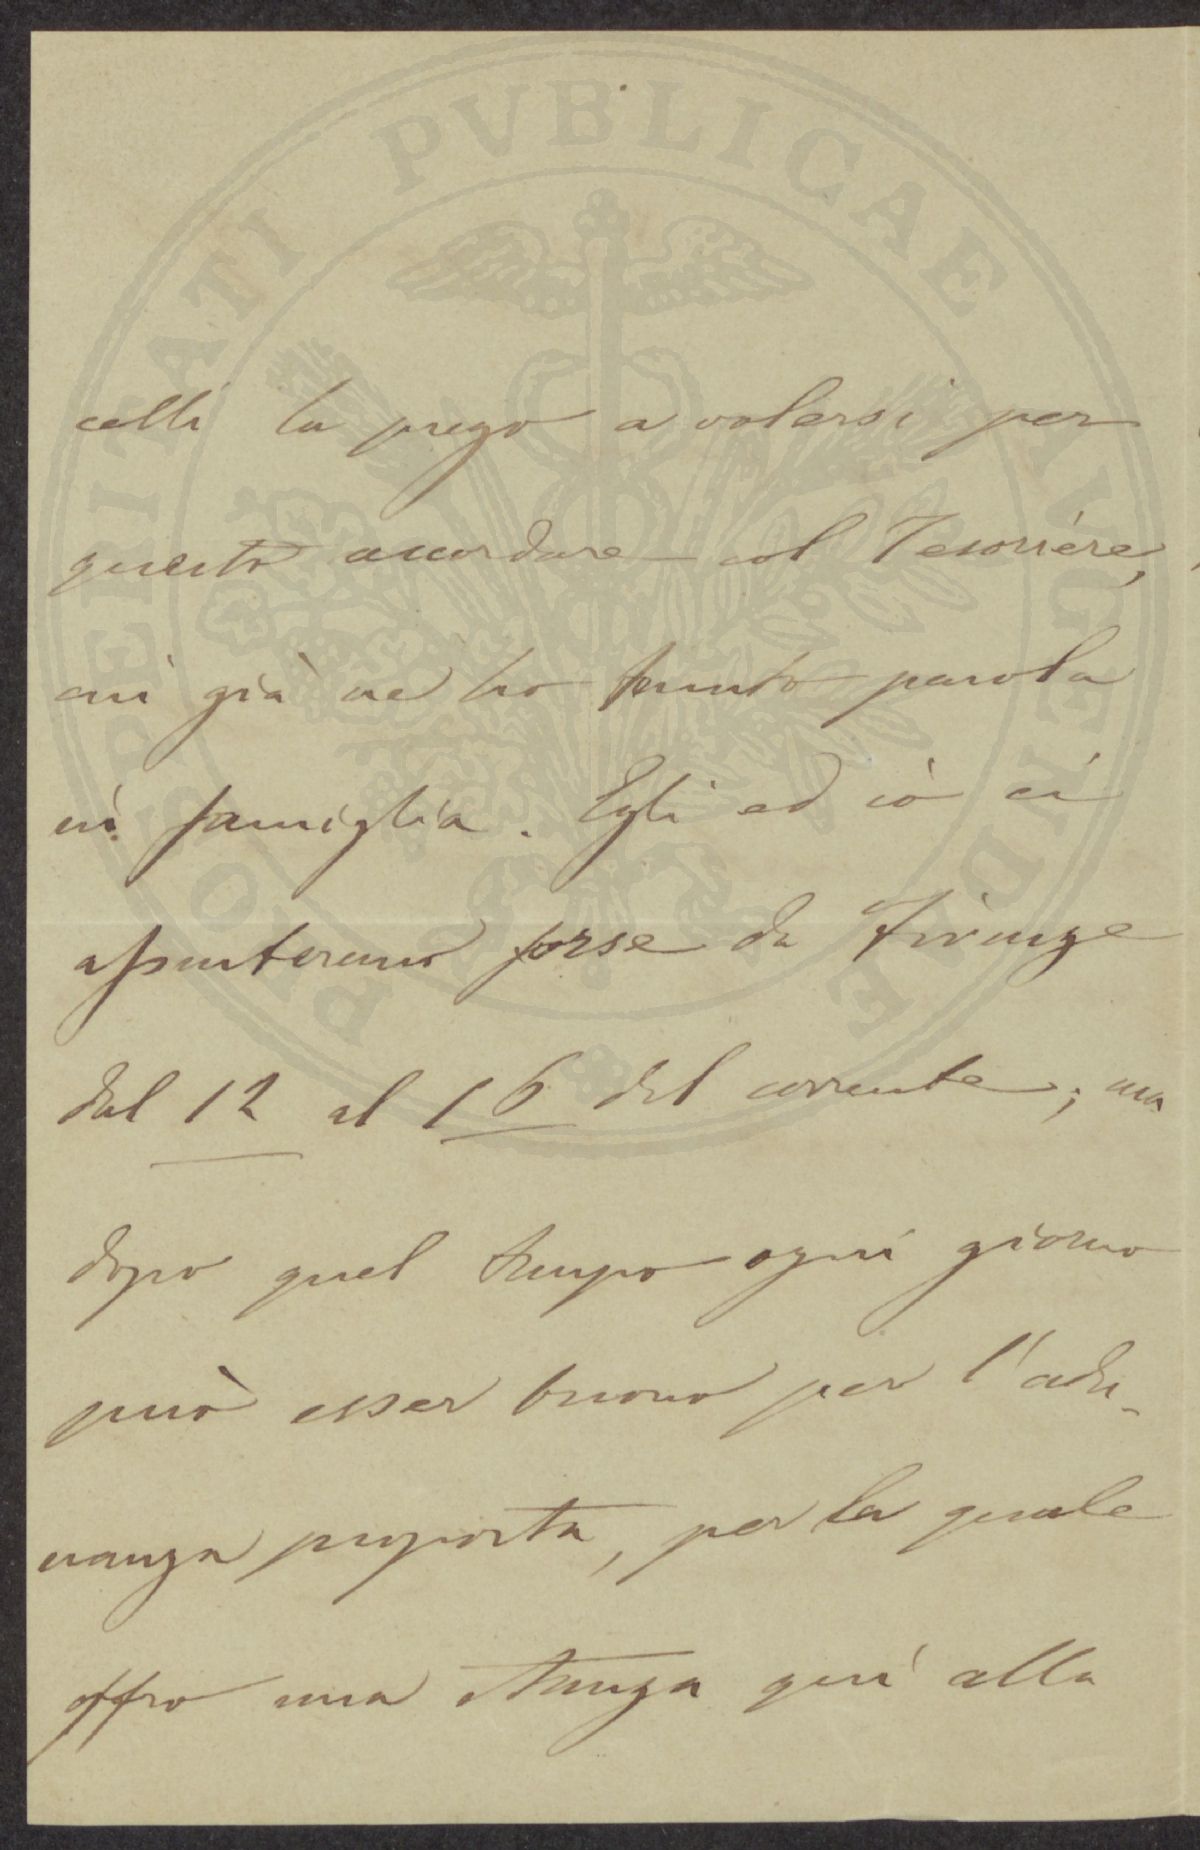 celli la prego a volersi per
questo accordare col Tesoriere,
cui già ne ho tenuto parola
in famiglia. Egli ed io ci
assenteremo forse da Firenze
dal 12 al 16 del corrente; ma
dopo quel tempo ogni giorno
può esser buono per l'adu-
nanza proposta, per la quale
offro una stanza qui alla
PROSPERITATI PVBLICAE AVGENDAE